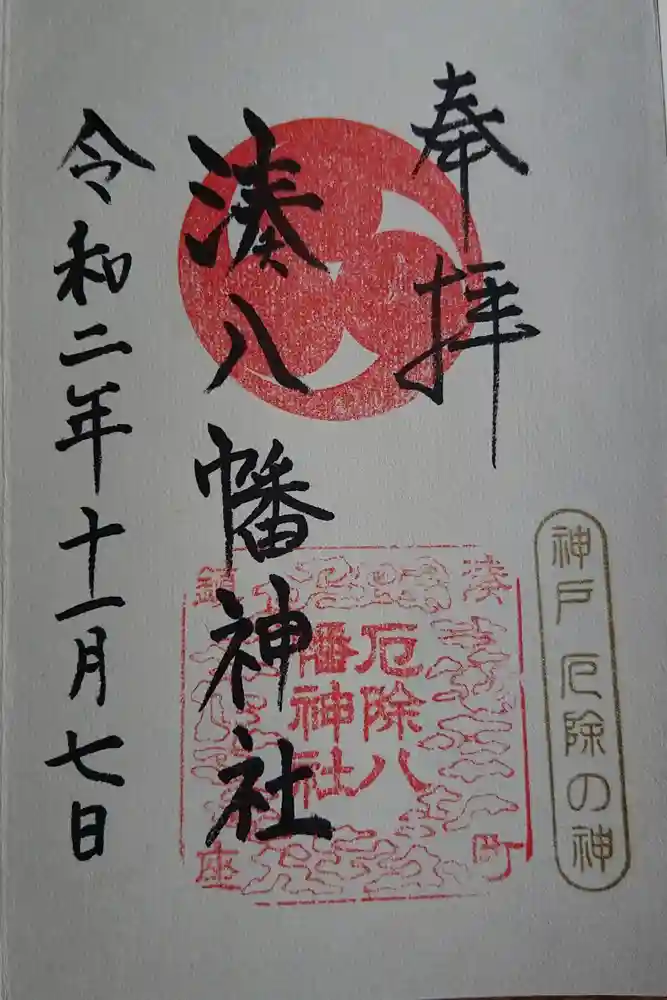 奉拝
湊八幡神社
令和二年十一月七日
神戸 厄除の神
厄除八
幡神社
湊
町
鎮
座